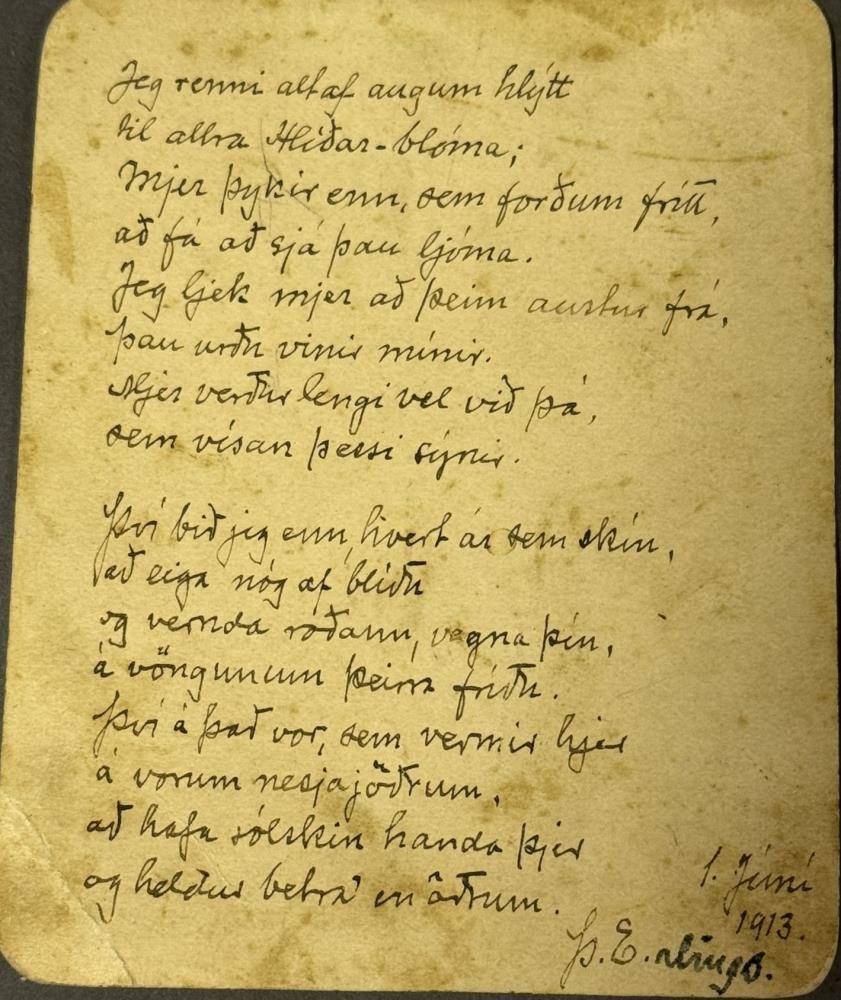 Jeg renni altaf augum hlýtt
til allra Hlíðar-blóma;
Mjer þykir enn, sem forðum frítt,
að fá að sjá þau ljóma.
Jeg ljek mjer að þeim austur frá,
þau urðu vinir mínir.
Mjer verður lengi vel við þá,
sem vísan þessi sýnir.
Því bið jeg enn, hvert ár sem skín,
að eiga nóg af blíðu
og vernda roðann, vegna þín,
á vöngunum þeim fríðu.
Því á það vor, sem vermir hjer
á vorum nesjajöðrum,
að hafa sólskin handa þjer
og heldur betra en öðrum.
1. Júní
1913.
Þ. E.